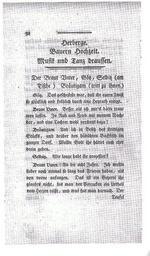 Herberge.
Bauern Hochzeit.
Musik und Tanz draussen.
Der Braut Vater, Götz, Selbitz (am
Tische) Bräutigam (tritt zu ihnen.)
Götz. Das gescheidste war, daß ihr euern Zwist so
glücklich und fröhlich durch eine Heyrath endigt.
Braut Vater. Besser als ich mir's hätte träu-
men lassen. In Ruh und Fried mit meinem Nach-
bar, und eine Tochter wohl versorgt dazu!
Bräutigam. Und ich in Besitz des strittigen
Stücks, und drüber den hübschten Backfisch im
ganzen Dorf. Wollte Gott ihr hättet euch eher
drein geben.
Selbitz. Wie lange habt ihr prozessirt?
Braut Vater. An die acht Jahre. Ich wollte
lieber noch einmal so lang das Frieren haben, als
von vorne anfangen. Das ist ein Gezerre ihr
glaubts nicht, bis man den Perrucken ein Urtheil
vom Herzen reißt, und was hat man darnach. Der
Teufel